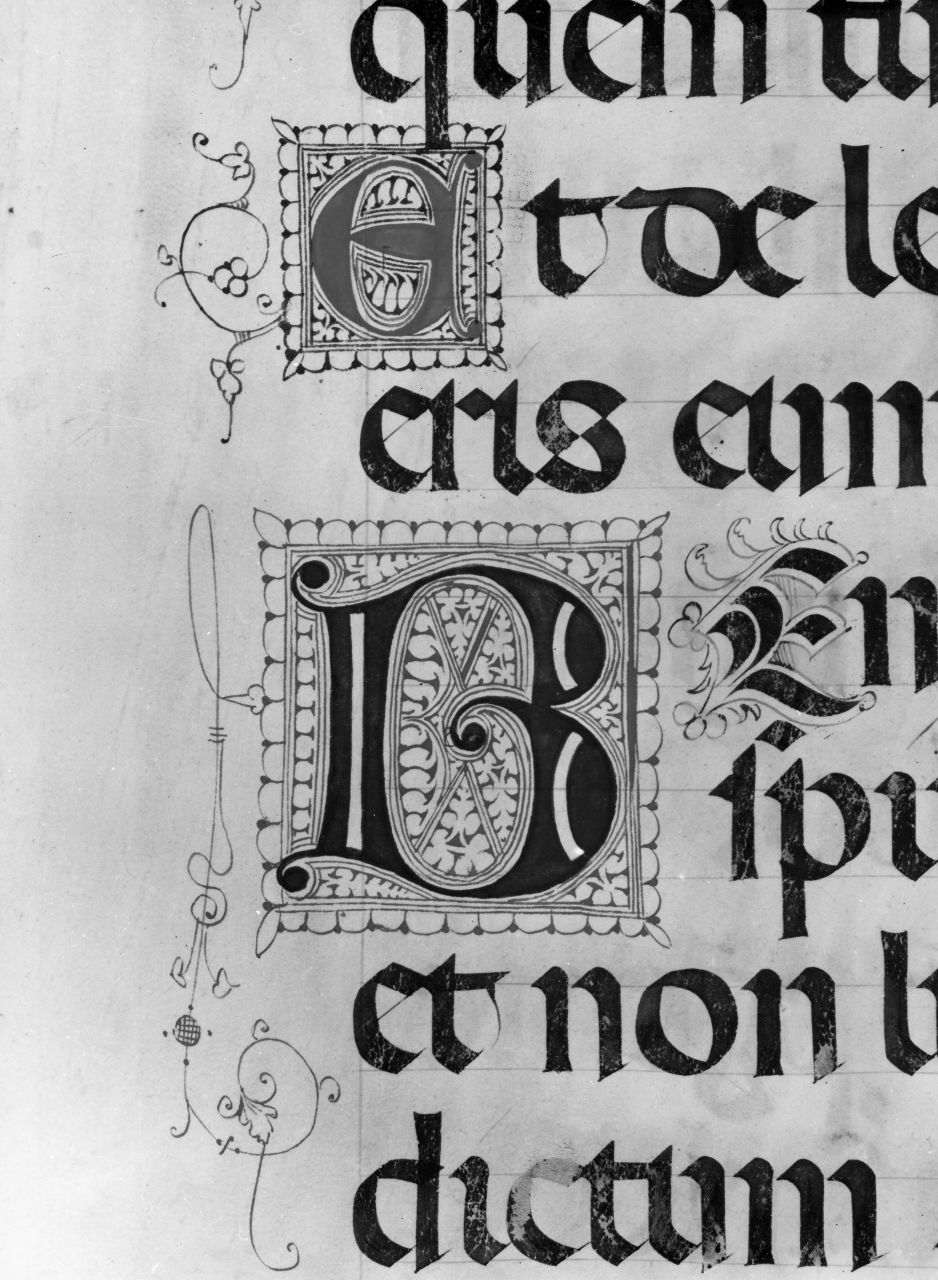 quem tu
Et de le
eris eum
BEn
spi
et non
dictum